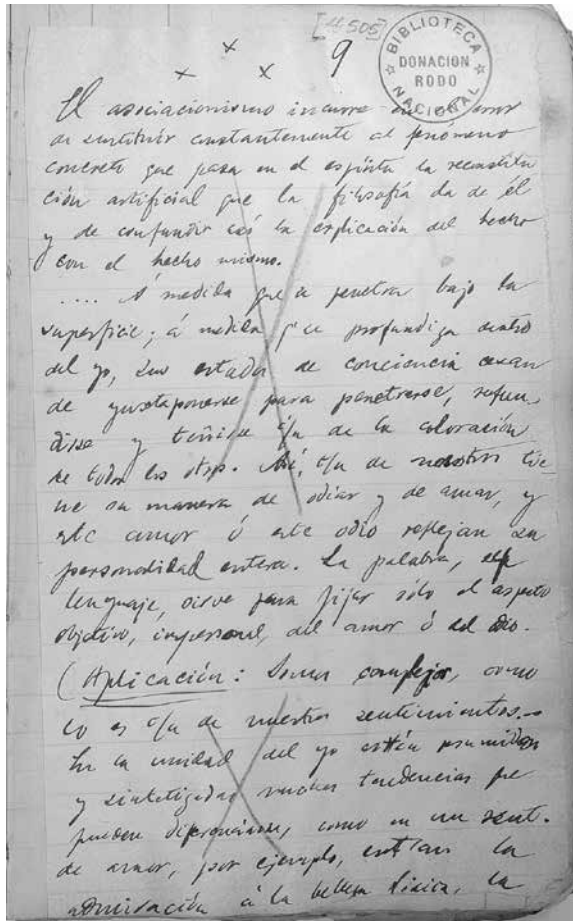 [4505]
9
BIBLIOTECA NACIONAL
DONACION
RODO
El asociacionismo incurre en el error
de sustituir constantemente al fenómeno
concreto que pasa en el espíritu la reconstitu
ción artificial que la filosofía da de él
y de confundir así la explicación del hecho
con el hecho mismo.
.... Á medida que se penetra bajo la
superficie; á medida q̃ se profundiza dentro
del yo, sus estados de conciencia cesan
de yuxtaponerse para penetrarse, refun-
dirse y teñirse c/u de la coloración
de todos los otros. Así, c/u de nosotros tie
ne su manera de odiar y de amar, y
este amor ó este odio reflejan su
personalidad entera. La palabra, el
lenguaje, sirve para fijar sólo el aspecto
objetivo, impersonal, del amor ó del odio.
(Aplicación: Somos complejos, como
lo es c/u de nuestros sentimientos.—
En la unidad del yo están resumidas
y sintetizadas muchas tendencias que
pueden diferenciarse, como en un sent.
de amor, por ejemplo, entran la
admiración á la belleza física, la